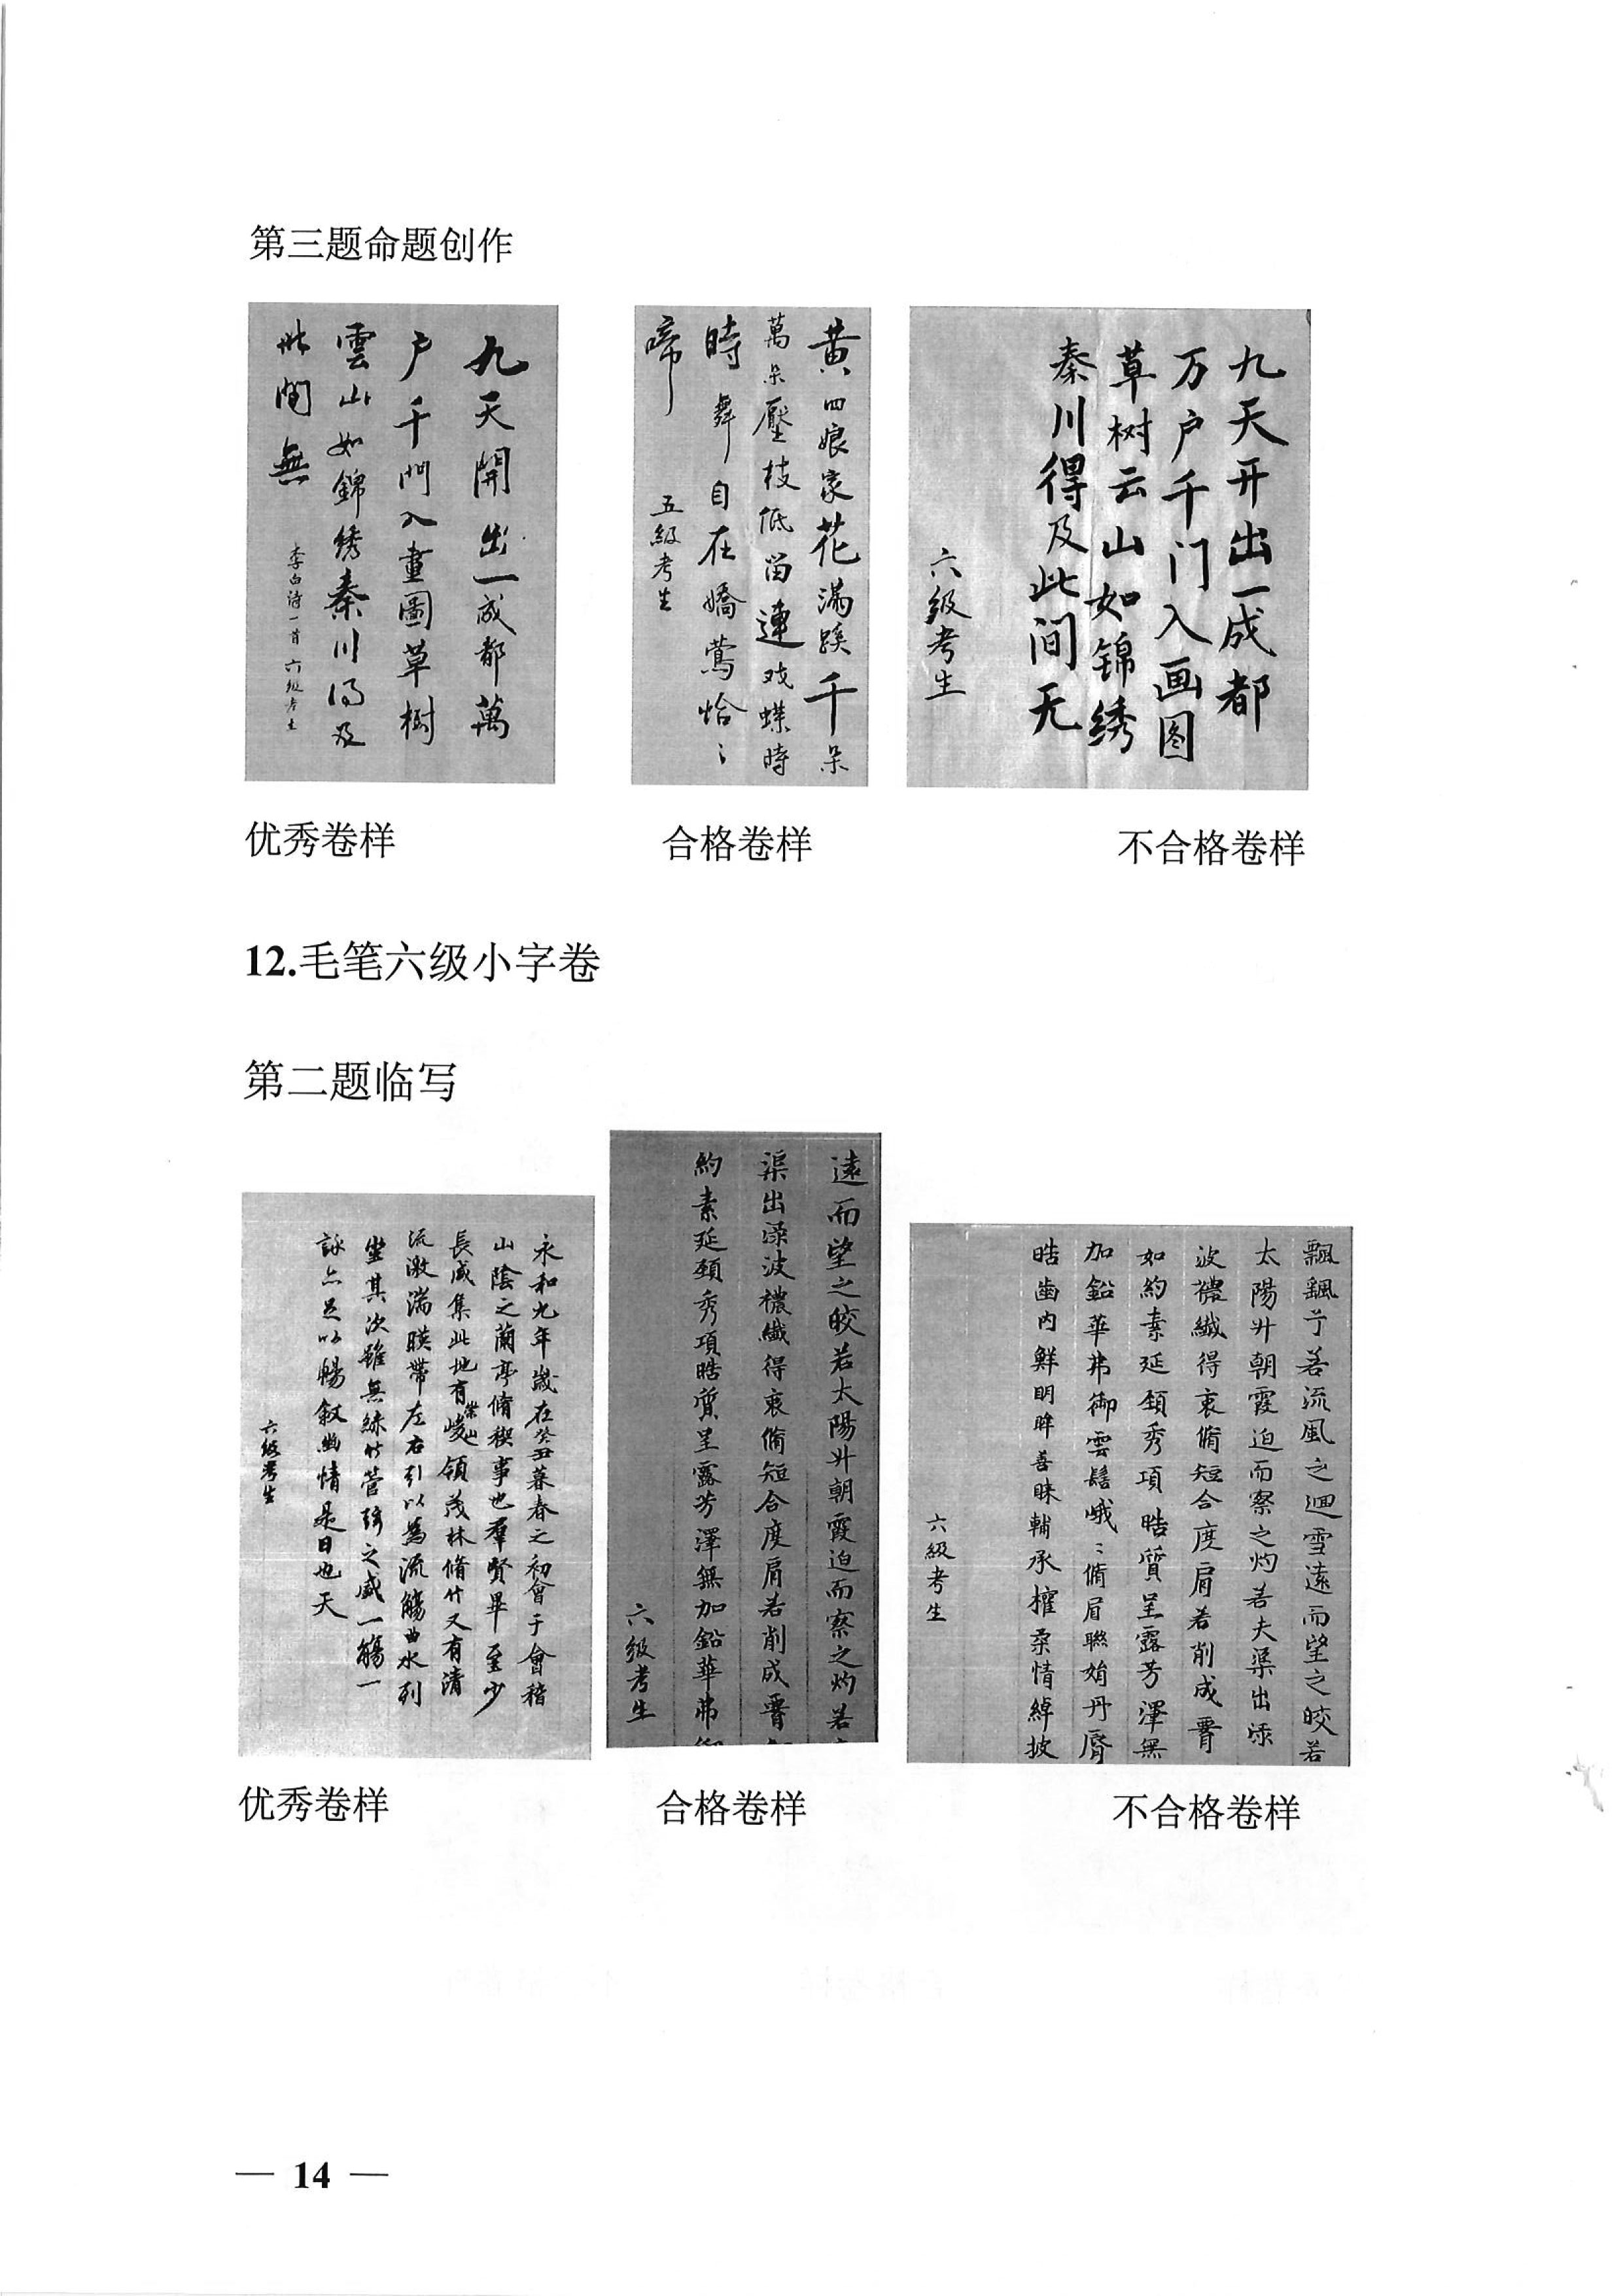 第三题命题创作
九天開出一成都萬
户千門入畫圖草樹
雲山如錦绣秦川得及
此間無
李白诗一首 六级考生
黄四娘家花满蹊千朵
萬朵壓枝低留連戏蝶時
時舞自在嬌鶯恰々
啼
五級考生
九天开出一成都
万户千门入画图
草树云山如锦绣
秦川得及此间无
六级考生
优秀卷样
合格卷样
不合格卷样
12.毛笔六级小字卷
第二题临写
永和九年歲在癸丑暮春之初會于會稽
山陰之蘭亭脩稧事也羣賢畢至少
長咸集此地有崇山峻領茂林脩竹又有清
流激湍暎帶左右引以為流觴曲水列
坐其次雖無絲竹管弦之盛一觴一
詠亦足以暢敘幽情是日也天
六級考生
遠而望之皎若太陽升朝霞迫而察之灼若
渠出淥波襛纖得衷脩短合度肩若削成署
約素延頸秀項皓質呈露芳澤無加鉛華弗御
六级考生
飄飖兮若流風之迴雪遠而望之皎若
太陽升朝霞迫而察之灼若夫渠出淥
波襛纖得衷脩短合度肩若削成署
如約素延頸秀項皓質呈露芳澤無
加鉛華弗御雲髻峨々脩眉聯娟丹脣
皓齒内鮮明眸善睐輔承權柔情綽披
六級考生
优秀卷样
合格卷样
不合格卷样
— 14 —